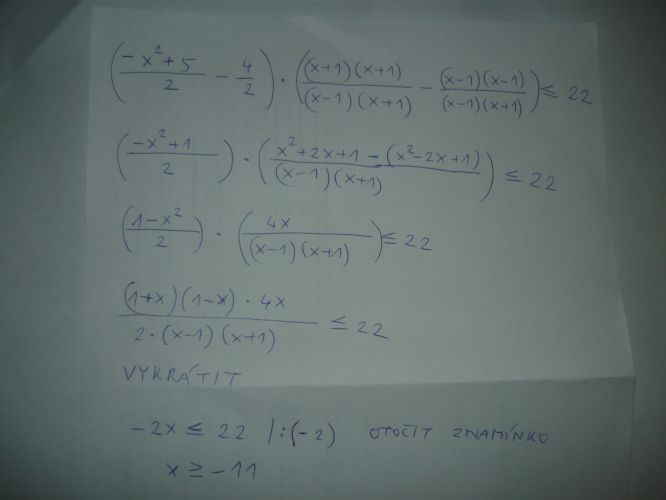 ((-x²+5)/2 - 4/2) · (((x+1)(x+1))/((x-1)(x+1)) - ((x-1)(x-1))/((x-1)(x+1))) ≤ 22
((-x²+1)/2) · ((x²+2x+1-(x²-2x+1))/((x-1)(x+1))) ≤ 22
((1-x²)/2) · (4x/((x-1)(x+1))) ≤ 22
((1+x)(1-x)·4x)/(2·(x-1)(x+1)) ≤ 22
VYKRÁTIT
-2x ≤ 22 |:(-2) OTOČIT ZNAMÍNKO
x ≥ -11